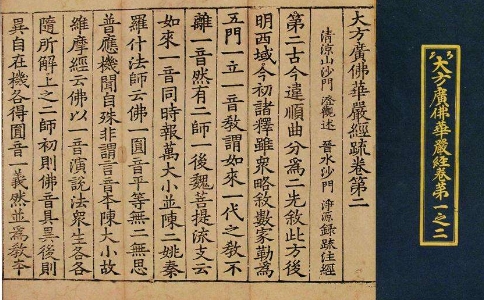 大方廣佛華嚴經疏卷第二
清涼山沙門 澄觀述 晉水沙門 淨源錄疏注經
第二古今違順曲分為二先敘此方後
明西域今初諸釋雖衆略敘數家勒為
五門一立一音教謂如來一代之教不
離一音然有二師一後魏菩提流支云
如來一音同時報萬大小並陳二姚秦
羅什法師云佛一圓音平等無二無思
普應機聞自殊非謂言音本陳大小故
維摩經云佛以一音演說法衆生各各
隨所解上之二師初則佛音具異後則
異自在機各得圓音一義然並為教本
大方廣佛華嚴經卷第一之二